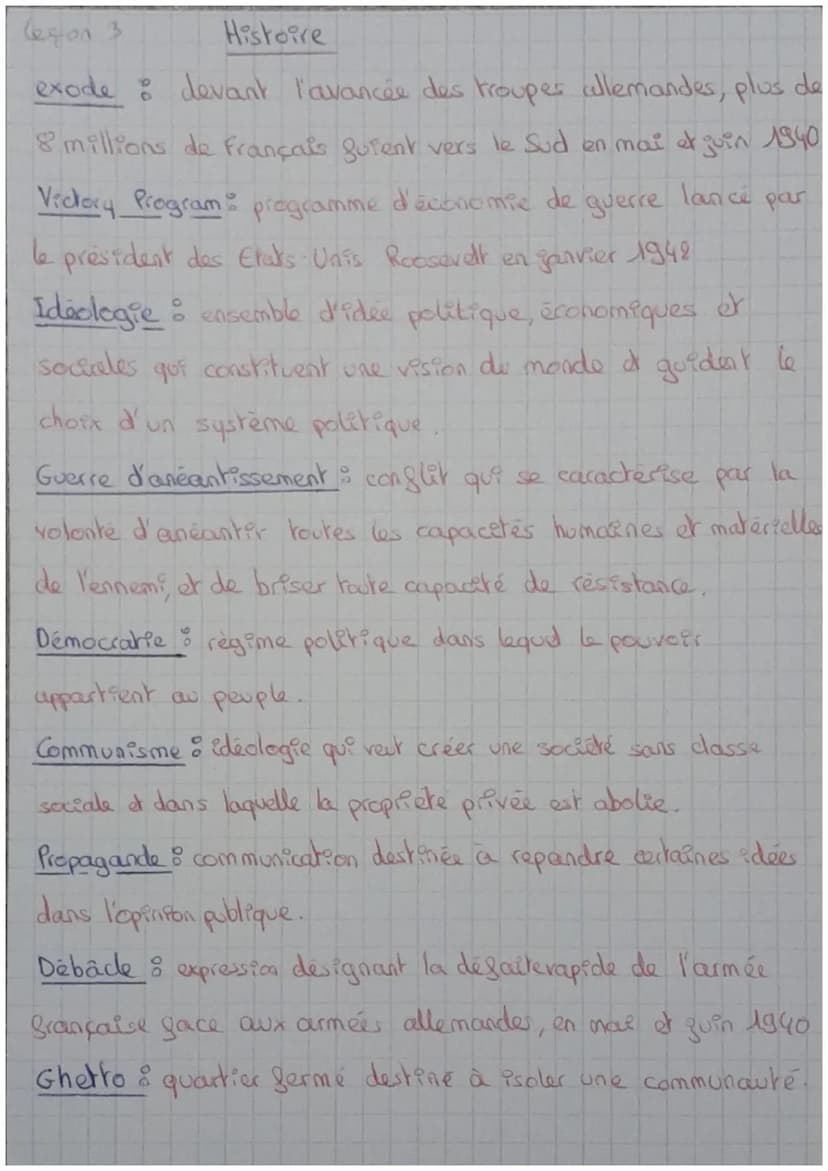 Leçon 3 Histoire
exode : devant l'avancée des troupes allemandes, plus de
8 millions de français fuient vers le Sud en mai et juin 1940
Victory Program : programme d'économie de guerre lancé par
le président des Etats-Unis Roosevelt en janvier 1942
Idéologie : ensemble d'idée politique, économiques et
sociales qui constituent une vision du monde et guident le
choix d'un système politique.
Guerre d'anéantissement : conflit qui se caractérise par la
volonté d'anéantir toutes les capacités humaines et matérielles
de l'ennemi, et de briser toute capacité de résistance.
Démocratie : régime politique dans lequel le pouvoir
appartient au peuple.
Communisme : idéologie qui veut créer une société sans classe
sociale et dans laquelle la propriété privée est abolie.
Propagande : communication destinée à repandre certaines idées
dans l'opinion publique.
Débâcle : expression désignant la défaite rapide de l'armée
française face aux armées allemandes, en mai et juin 1940
Ghetto : quartier fermé destiné à isoler une communauté.